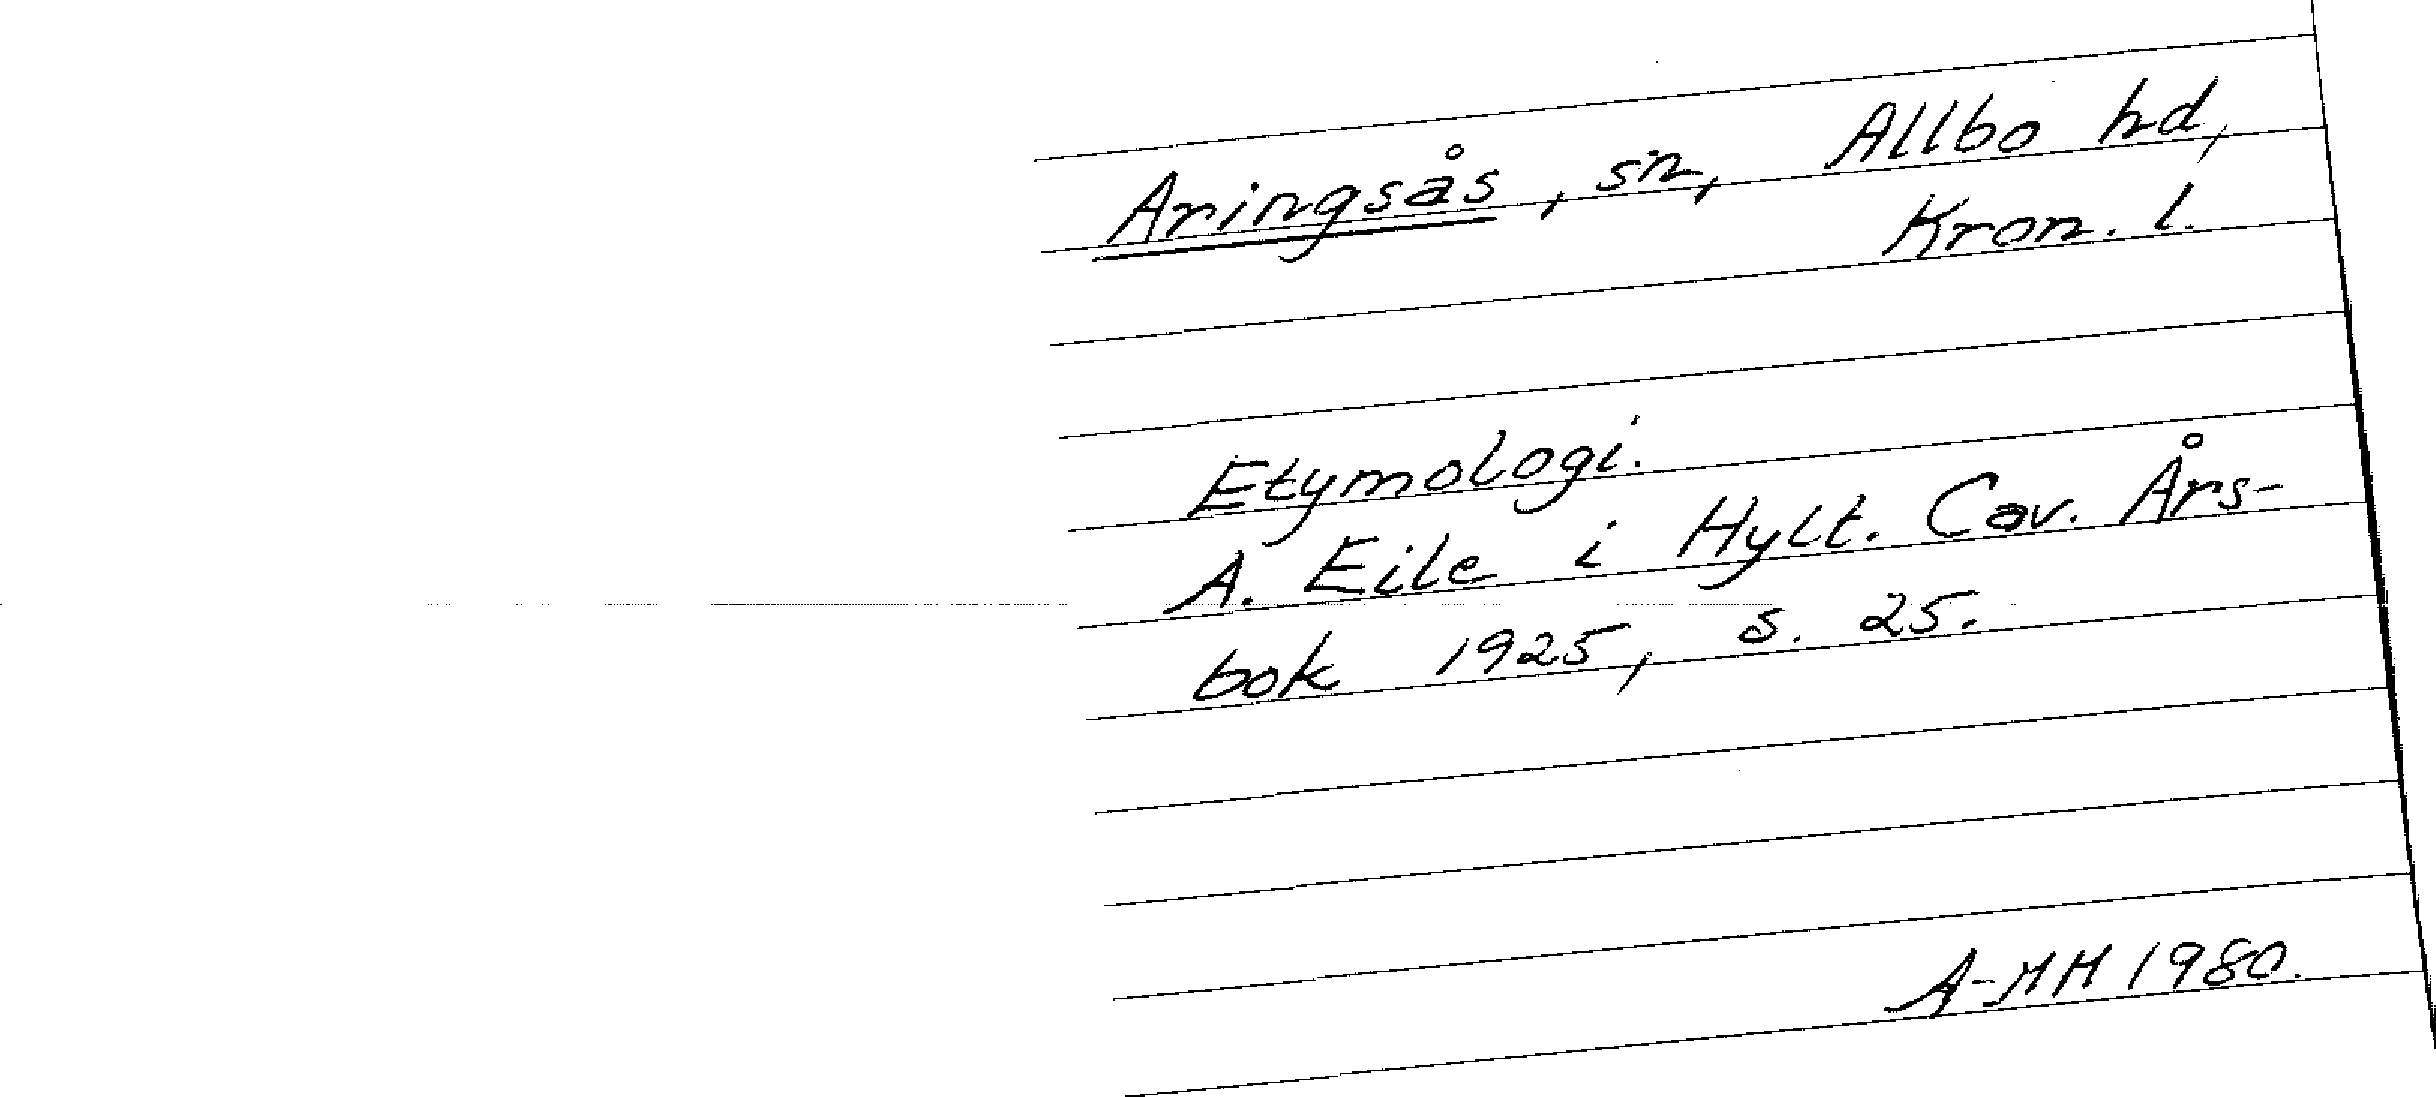 Aringsås, sn, Allbo hd,
Kron. l.
Etymologi.
A. Eile i Hylt. Cav. Års-
bok 1925, s. 25.
A-MH 1980.